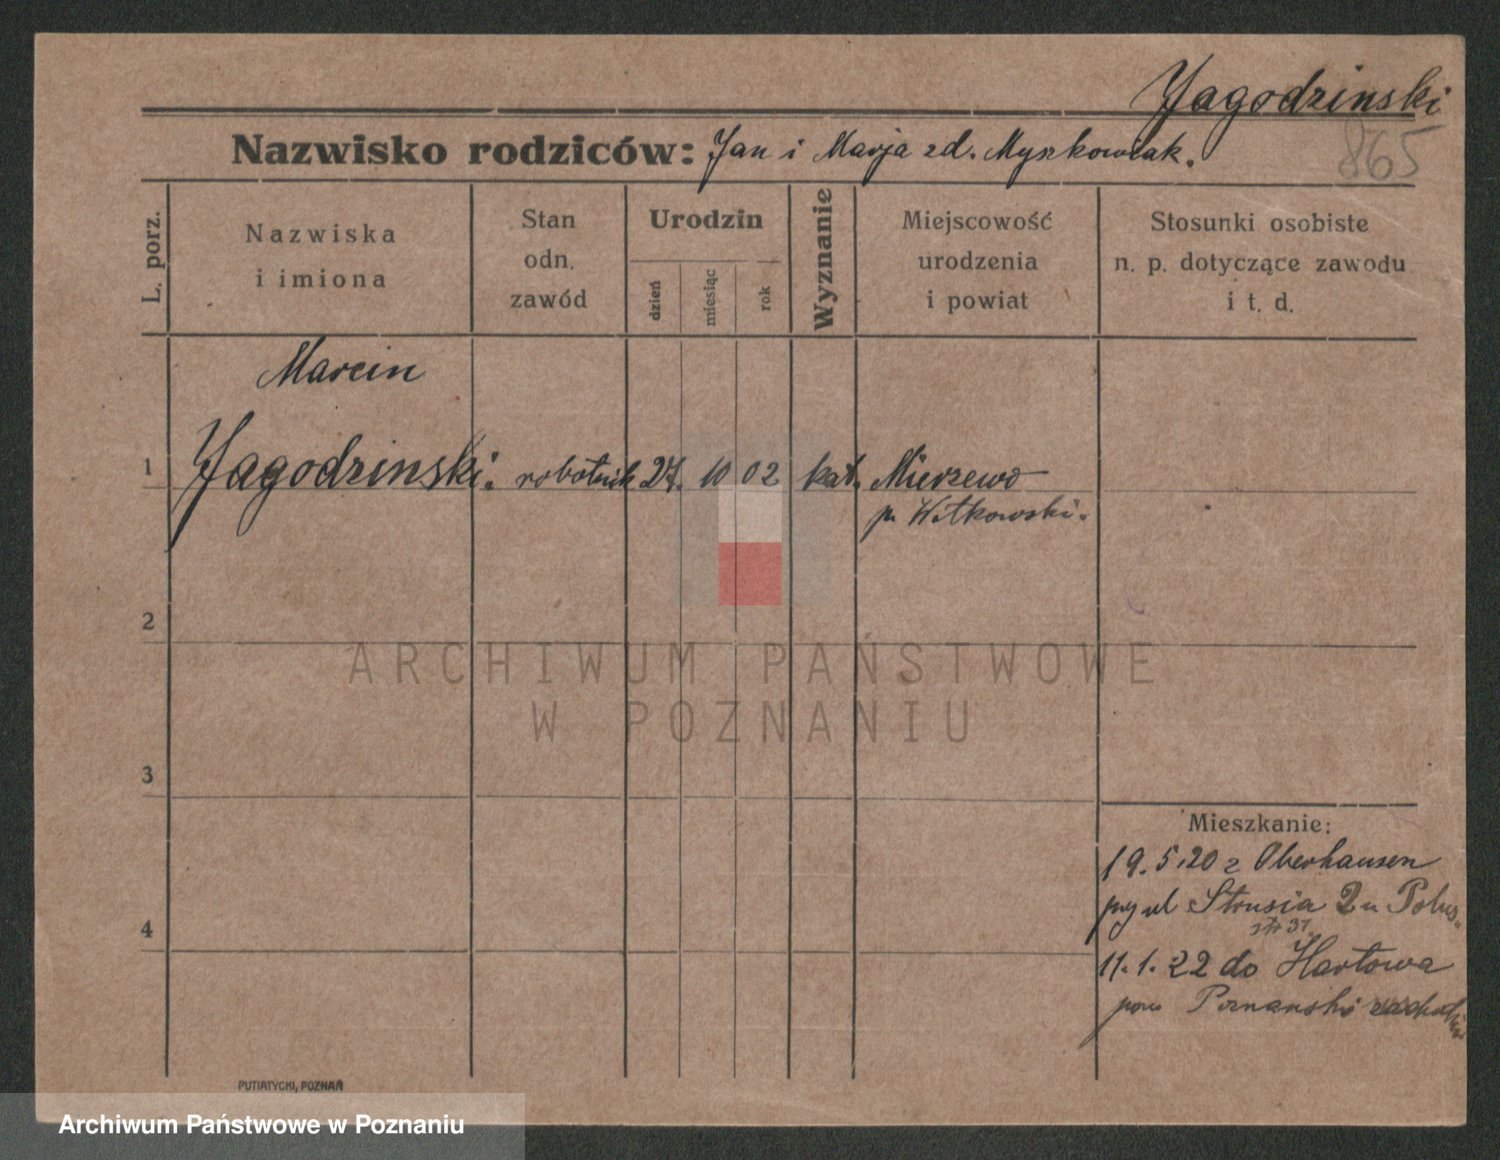 Jagodzinski
865
Nazwisko rodziców: Jan i Marja zd. Myszkowiak.
L. porz.
Nazwiska
i imiona
Stan
odn.
zawód
Urodzin
dzień
miesiąc
rok
Wyznanie
Miejscowość
urodzenia
i powiat
Stosunki osobiste
n. p. dotyczące zawodu
i t. d.
Marcin
1 Jagodzinski. robotnik 27. 10 02 kat. Mierzewo
p. Witkowski.
2
ARCHIWUM PAŃSTWOWE
W POZNANIU
3
Mieszkanie:
19.5.20 z Oberhausen
przy ul Strusia 2 u
4
11.1.22 do Hartowa
pow Poznański
PUTIATYCKI, POZNAŃ
Archiwum Państwowe w Poznaniu